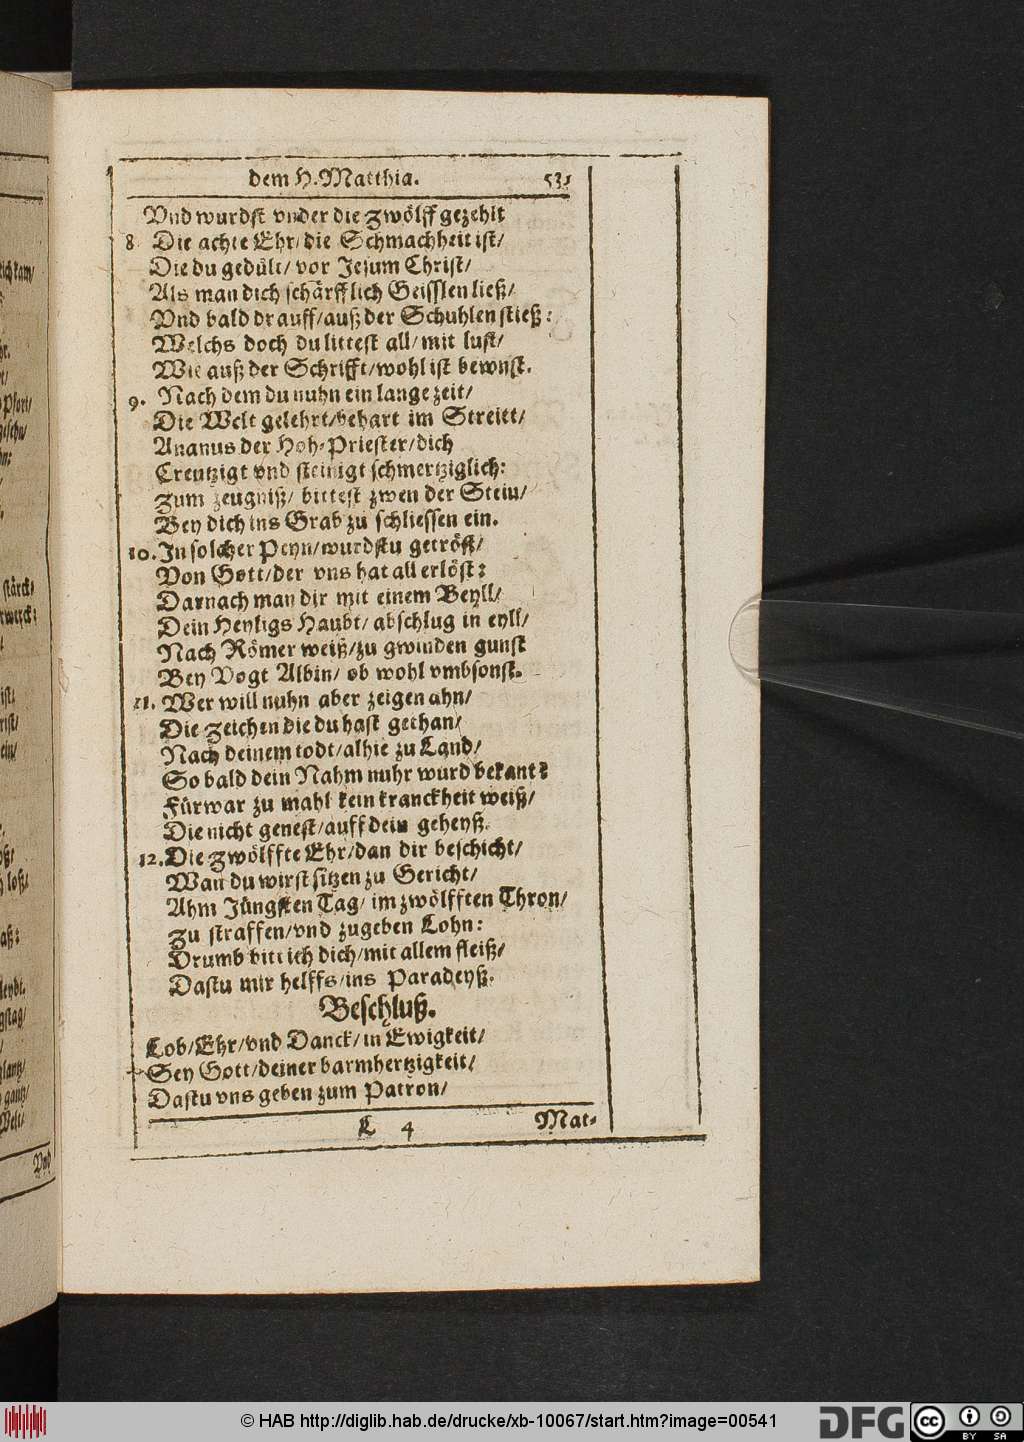 dem H. Matthia. 531
Vnd wurdst vnder die Zwölff gezehlt
8 Die achte Ehr/ die Schmachheit ist/
Die du gedült/ vor Jesum Christ/
Als man dich schärfflich Geisslen ließ/
Vnd bald drauff/ auß der Schuhlen stieß:
Welchs doch du littest all/ mit lust/
Wie auß der Schrifft/ wohl ist bewust.
9. Nach dem du nuhn ein lange zeit/
Die Welt gelehrt/ behart im Streitt/
Ananus der Hoh-Priester/ dich
Creutzigt vnd steinigt schmertziglich:
Zum zeugniß/ bittest zwen der Stein/
Bey dich ins Grab zu schliessen ein.
10. In solcher Peyn/ wurdstu getröst/
Von Gott/ der vns hat all erlöst:
Darnach man dir mit einem Beyll/
Dein Heyligs Haubt/ abschlug in eyll/
Nach Römer weiß/ zu gwinden gunst
Bey Vogt Albin/ ob wohl vmbsonst.
11. Wer will nuhn aber zeigen ahn/
Die Zeichen die du hast gethan/
Nach deinem todt/ alhie zu Land/
So bald dein Nahm nuhr wurd bekant?
Fürwar zu mahl kein kranckheit weiß/
Die nicht genest/ auff dein geheyß.
12. Die Zwölffte Ehr/ dan dir beschicht/
Wan du wirst sitzen zu Gericht/
Ahm Jüngsten Tag/ im zwölfften Thron/
Zu straffen/ vnd zugeben Lohn:
Drumb bitt ich dich/ mit allem fleiß/
Dastu mir helffs/ ins Paradeyß.
Beschluß.
Lob/ Ehr/ vnd Danck/ in Ewigkeit/
Sey Gott/ deiner barmhertzigkeit/
Dastu vns geben zum Patron/
L 4 Mat-
© HAB http://diglib.hab.de/drucke/xb-10067/start.htm?image=00541
DFG
CC BY SA